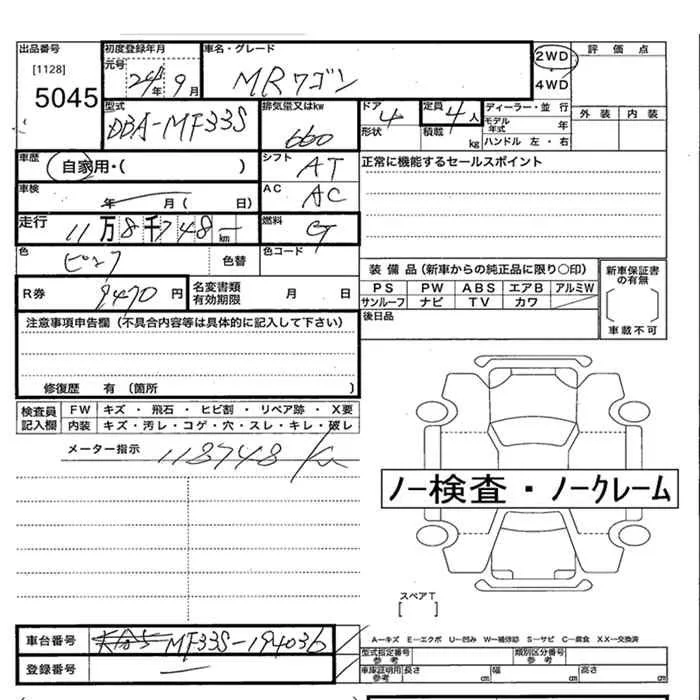 出品番号 初度登録年月 車名・グレード 2WD 評価点
[1128] 元号 24年 9月 MRワゴン 4WD
5045 外装 内装
型式 排気量又はkw ドア 4 定員 4人 ディーラー・並 行
DBA-MF33S 660 形状 積載 kg モデル年式 年
ハンドル 左・右
車歴 自家用・( ) シフト AT 正常に機能するセールスポイント
車検 年 月( 日) AC AC
走行 11万8千748km 燃料 G
色 ピンク 色替 色コード
装備品(新車からの純正品に限り○印) 新車保証書の有無
R券 9470円 名変書類有効期限 月 日 PS PW ABS エアB アルミW
サンルーフ ナビ TV カワ
注意事項申告欄(不具合内容等は具体的に記入して下さい) 後日品 車載不可
修復歴 有(箇所 )
検査員記入欄 FW キズ・飛石・ヒビ割・リペア跡・X要
内装 キズ・汚レ・コゲ・穴・スレ・キレ・破レ
メーター指示 118748 km
ノー検査・ノークレーム
スペアT
[ ]
車台番号 MF33S-194036 A-キズ E-エクボ U-凹み W-補修跡 S-サビ C-腐食 XX-交換済
型式指定番号参考 類別区分番号参考
登録番号 車庫証明用参考 長さ cm 幅 cm 高さ cm